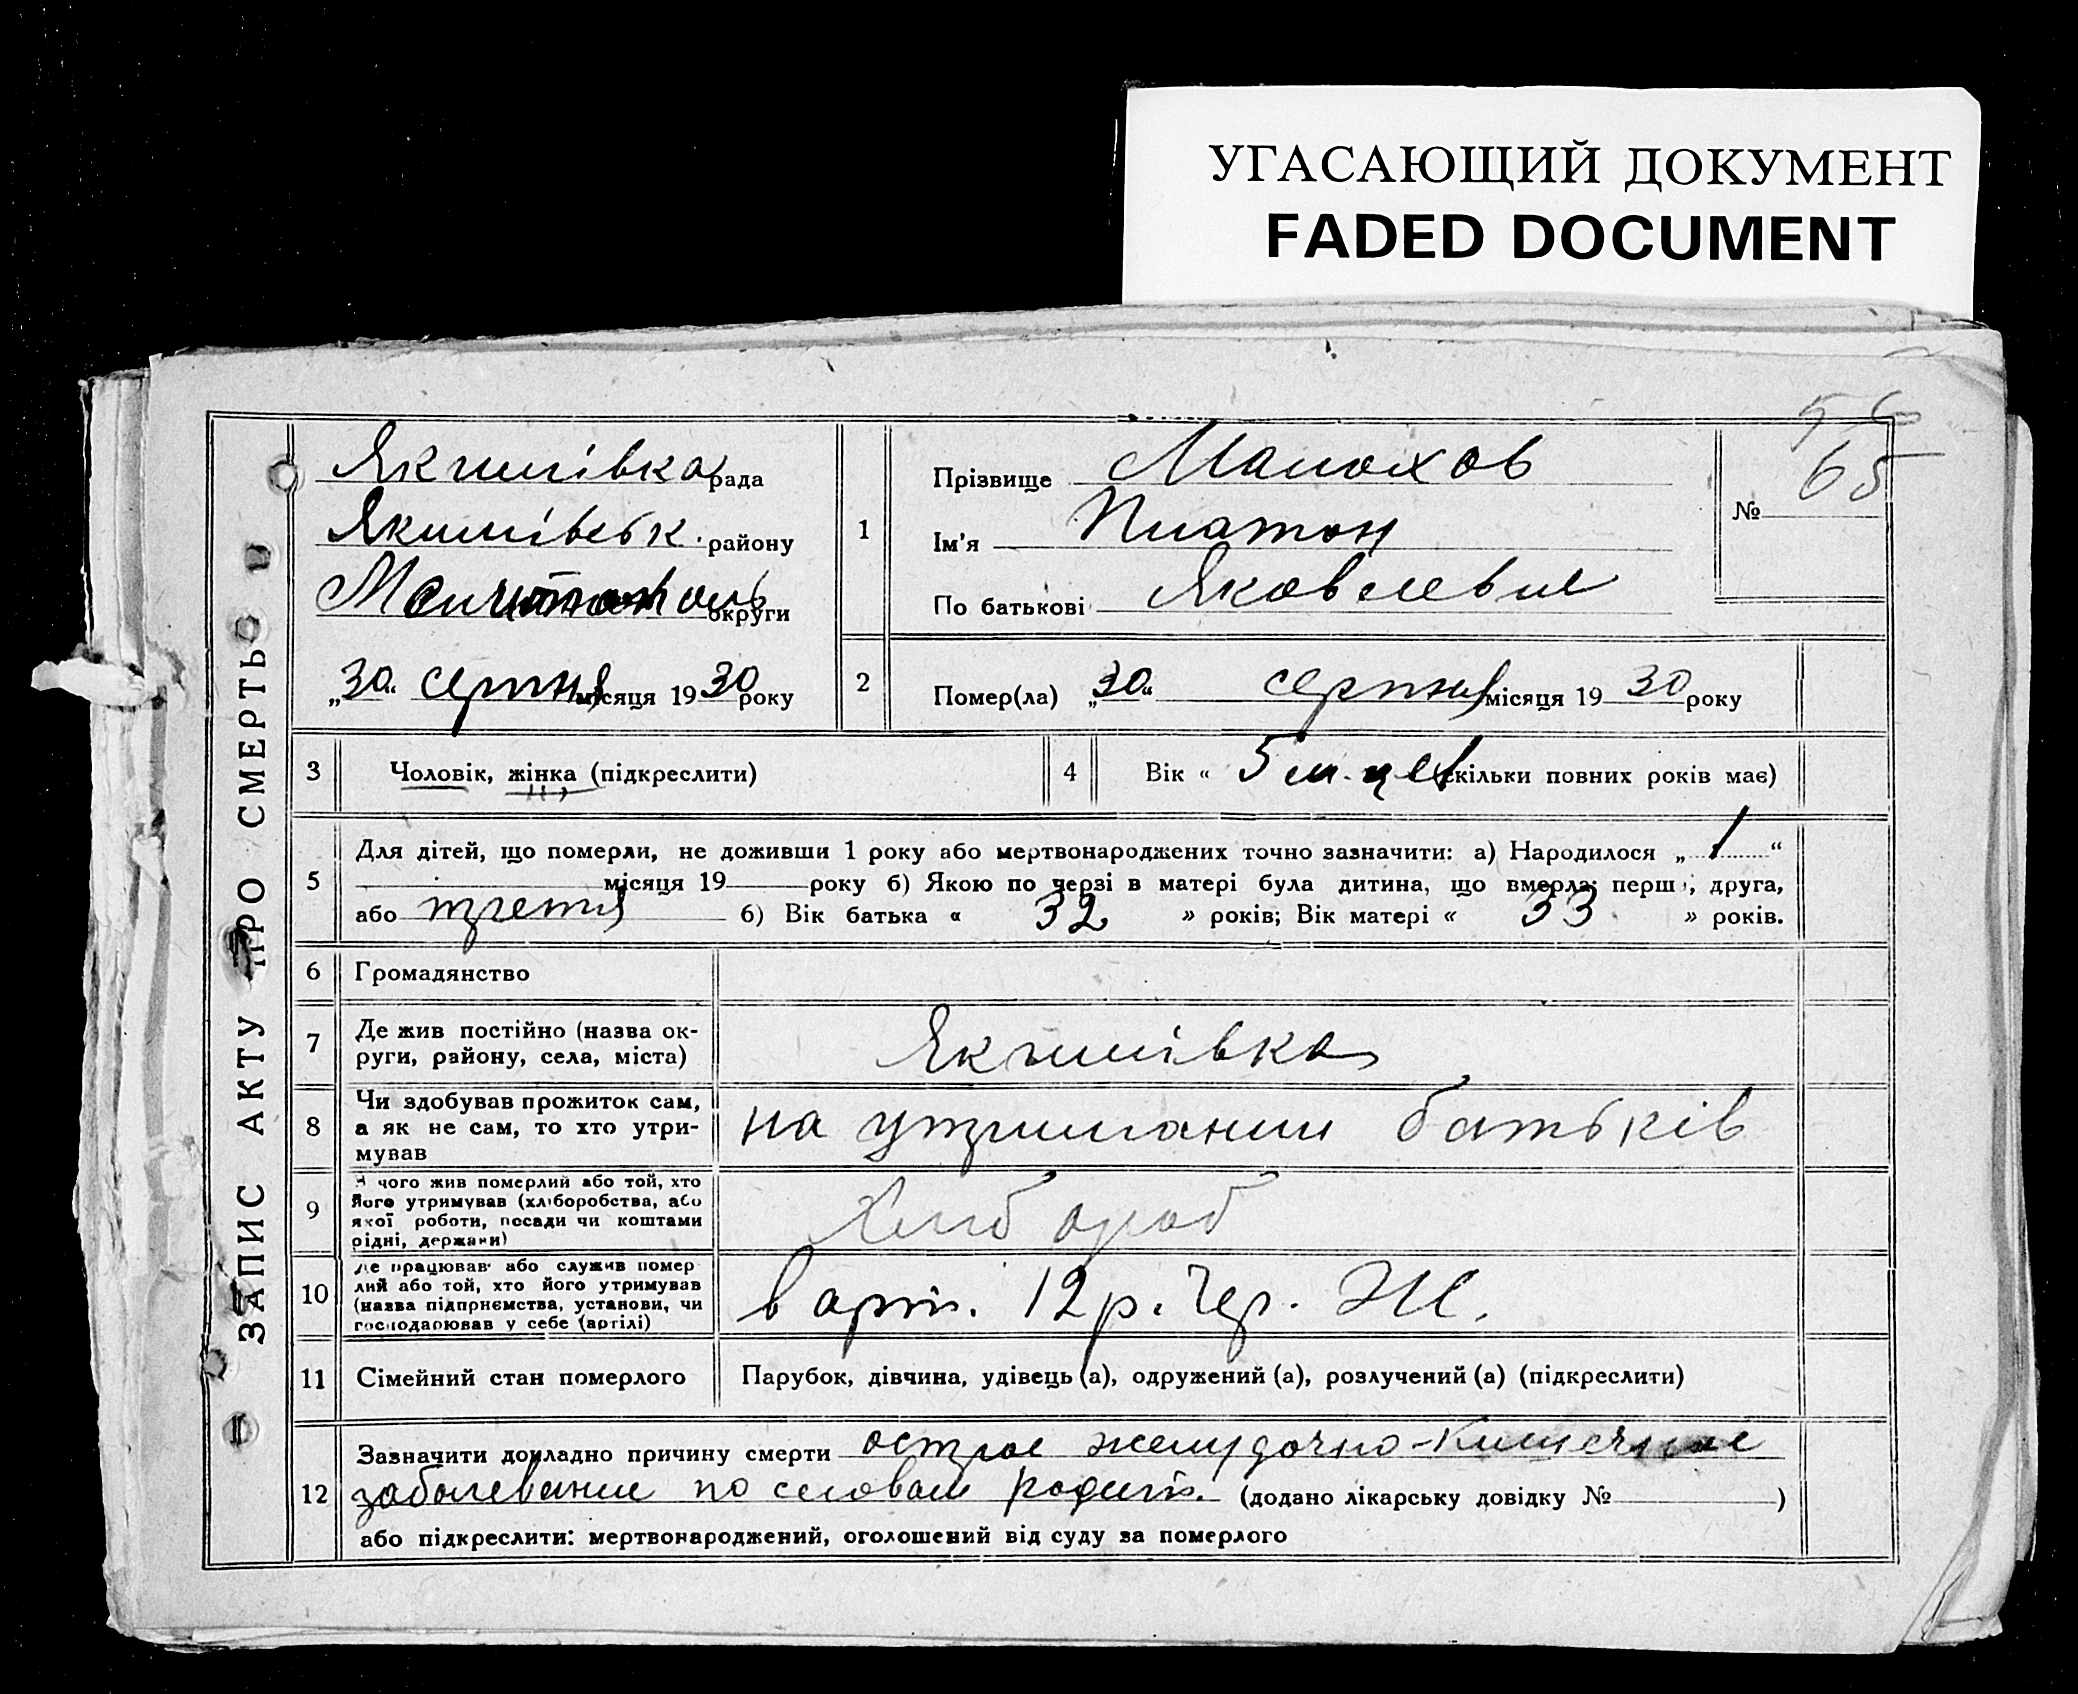 УГАСАЮЩИЙ ДОКУМЕНТ
FADED DOCUMENT
56
65
ЗАПИС АКТУ ПРО СМЕРТЬ
Якимівка рада
Якимівськ. району
округи
„30“ серпня місяця 1930 року
1
Прізвище Манохов
Ім'я Платон
По батькові Яковлевич
№
2
Помер(ла) „30“ серпня місяця 1930 року
3 Чоловік, жінка (підкреслити)
4 Вік « 5 м-цев скільки повних років має)
5 Для дітей, що померли, не доживши 1 року або мертвонароджених точно зазначити: а) Народилося „ 1 “
місяця 19 року б) Якою по черзі в матері була дитина, що вмерла: перша, друга,
або третя б) Вік батька « 32 » років; Вік матері « 33 » років.
6 Громадянство
7 Де жив постійно (назва ок-
руги, району, села, міста)
Якимівка
8 Чи здобував прожиток сам,
а як не сам, то хто утри-
мував
на утримании батьків
9 З чого жив померлий або той, хто
його утримував (хліборобства, або
якої роботи, посади чи коштами
рідні, держави)
Хлібороб
10 Де працював або служив помер
лий або той, хто його утримував
(назва підприємства, установи, чи
господарював у себе (артілі)
в арт. 12 р. Чер.
11 Сімейний стан померлого
Парубок, дівчина, удівець (а), одружений (а), розлучений (а) (підкреслити)
12 Зазначити докладно причину смерти острое желудочно-кишечное
заболевание по словам родит. (додано лікарську довідку № )
або підкреслити: мертвонароджений, оголошений від суду за померлого